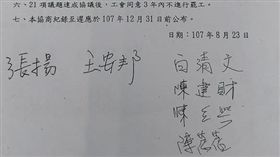 六、21 項議題達成協議後，工會同意 3 年內不進行罷工。
七、本協商紀錄至遲應於 107 年 12 月 31 日前公布。
日期：107 年 8 月 23 日
張揚 王安邦 白清文
陳建財
陳
陳蓓蓓